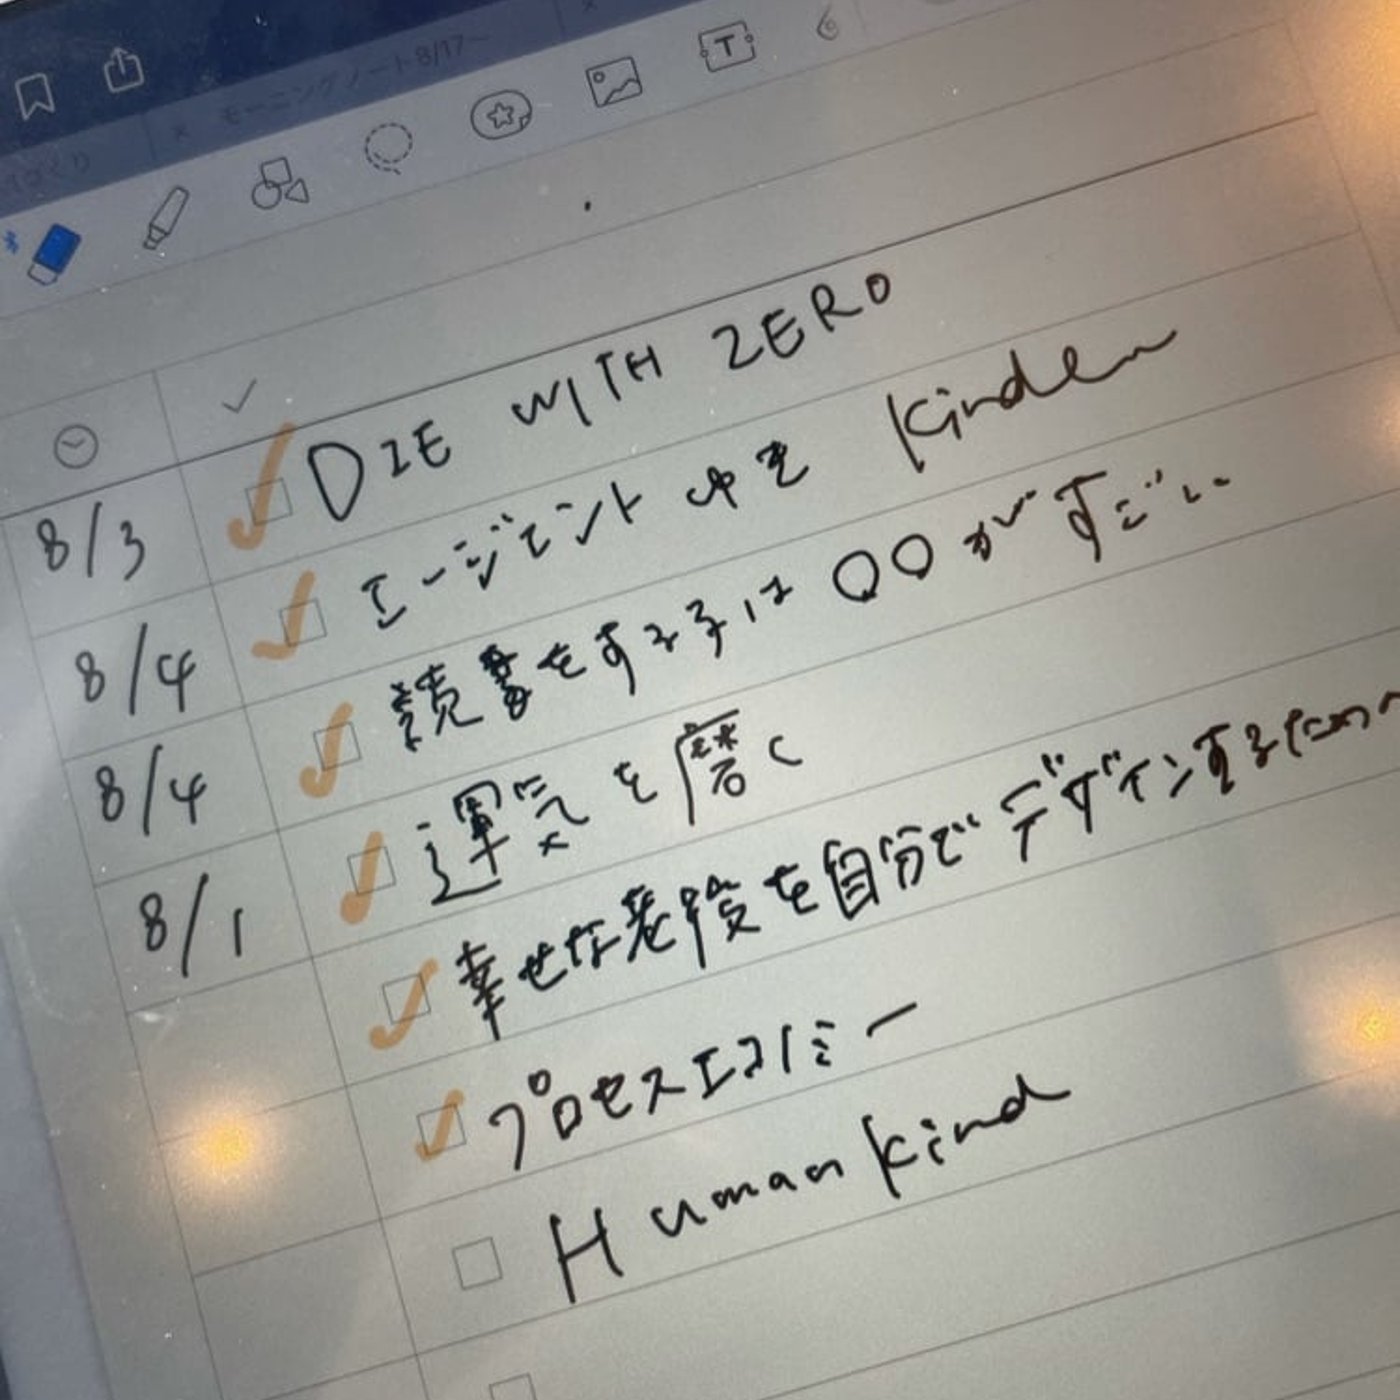 モーニングノート 8/17~
T
DIE WITH ZERO
8/3
エージェント ゆを Kinden
8/4
読書をする子は〇〇がすごい
8/4
運気を磨く
8/1
幸せな老後を自分でデザインするための
プロセスエコノミー
Humankind